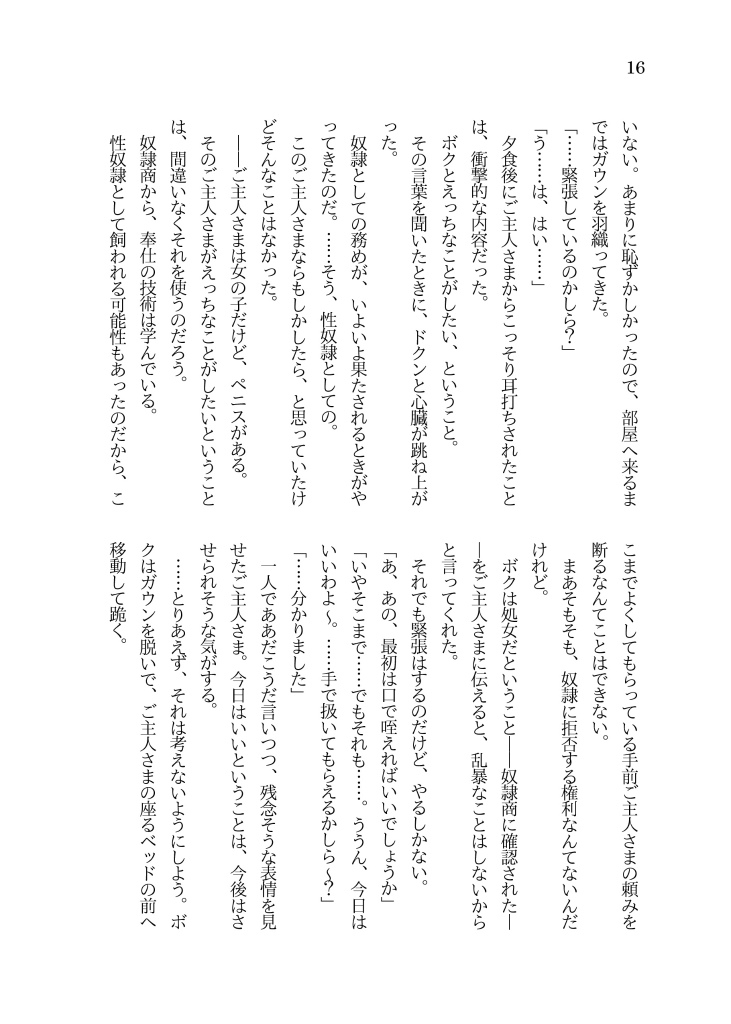 16
いない。あまりに恥ずかしかったので、部屋へ来るま
ではガウンを羽織ってきた。
「……緊張しているのかしら？」
「う……は、はい……」
夕食後にご主人さまからこっそり耳打ちされたこと
は、衝撃的な内容だった。
ボクとえっちなことがしたい、ということ。
その言葉を聞いたときに、ドクンと心臓が跳ね上が
った。
奴隷としての務めが、いよいよ果たされるときがや
ってきたのだ。……そう、性奴隷としての。
このご主人さまならもしかしたら、と思っていたけ
どそんなことはなかった。
――ご主人さまは女の子だけど、ペニスがある。
そのご主人さまがえっちなことがしたいということ
は、間違いなくそれを使うのだろう。
奴隷商から、奉仕の技術は学んでいる。
性奴隷として飼われる可能性もあったのだから、こ
こまでよくしてもらっている手前ご主人さまの頼みを
断るなんてことはできない。
まあそもそも、奴隷に拒否する権利なんてないんだ
けれど。
ボクは処女だということ――奴隷商に確認された―
―をご主人さまに伝えると、乱暴なことはしないから
と言ってくれた。
それでも緊張はするのだけど、やるしかない。
「あ、あの、最初は口で咥えればいいでしょうか」
「いやそこまで……でもそれも……。ううん、今日は
いいわよ～。……手で扱いてもらえるかしら～？」
「……分かりました」
一人でああだこうだ言いつつ、残念そうな表情を見
せたご主人さま。今日はいいということは、今後はさ
せられそうな気がする。
……とりあえず、それは考えないようにしよう。ボ
クはガウンを脱いで、ご主人さまの座るベッドの前へ
移動して跪く。